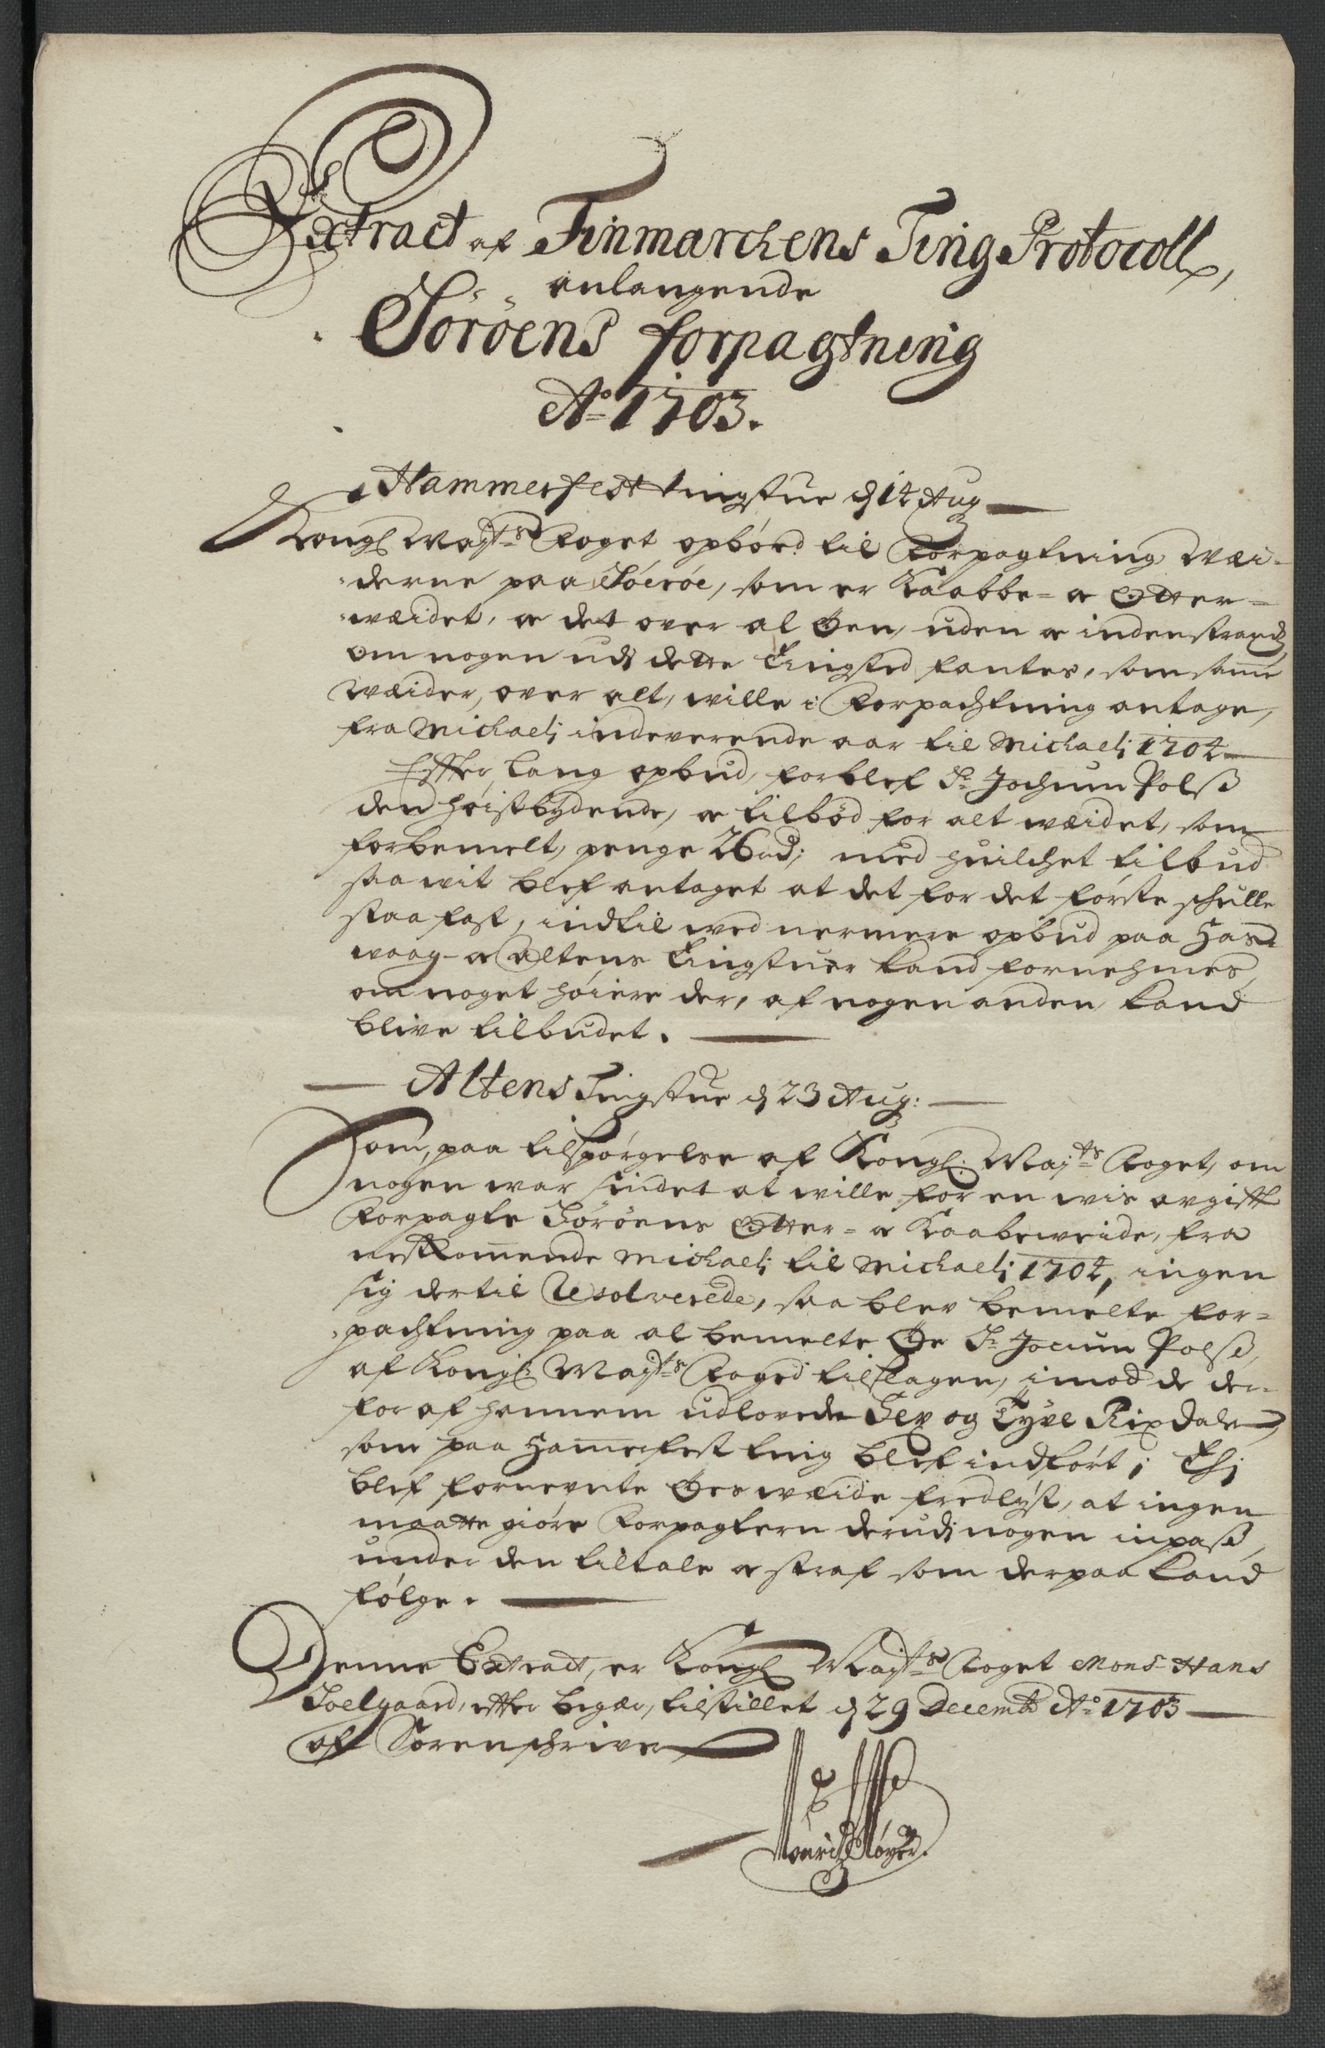 Extract af Finmarchens Ting Protocoll,
anlangende
Sørøens forpagtning
Ao 1703.
Hammerfest tingstue d 14 Aug
Kongl Mayts Foget opbød til Forpagtning Wæi-
derne paa Søerøe, som er Kaabbe- og Otter-
wæidet, og det over al Øen, uden og indenstrands,
om nogen udj dette Tingsted fantes, som same
Wæider, over alt, wille i Forpachtning antage,
fra Michaelj indeværende aar til Michaelj 1704
Effter lang opbud, forblef Sr Jochum Polsß
den høistbydende, og tilbød for alt wæidet, som
forbemelt, penge 26 rd; med huilchet tilbud
saa wit blef antaget at det for det første schulle
staa fast, indtil wed nermere opbud paa Has-
waag- og Altens Tingstuer kand fornehmes,
om noget høiere der, af nogen anden kand
blive tilbudet.
Altens Tingstue d 23 Aug:
Som, paa tilspørgelse af Kongl: Mayts Foget, om
nogen war sindet at wille for en wis avgifft
Forpagte Sørøens Otter- og Kaabeweide, fra
nestkomende Michaelj til Michaelj 1704, ingen
sig dertil Resolverede, saa blev bemelte for-
pachtning paa al bemelte Øe Sr Jocum Polsß,
af Kongl: Mayts Foged tilslagen, imod de der-
for af hannem udlovede Sex og Tyve Rixdaler
som paa Hamerfest ting blef indført; Thj
blef fornevnte Øes wæide fredlyst, at ingen
maatte giøre Forpagtern derudj nogen inpaß,
under den tiltale og straf som derpaa kand
følge.
Denne Extract, er Kongl Mayts Foget Mons Hans
Soelgaard, effter begær, tilstillet d 29 Decemb Ao 1703
af Sorenschriver